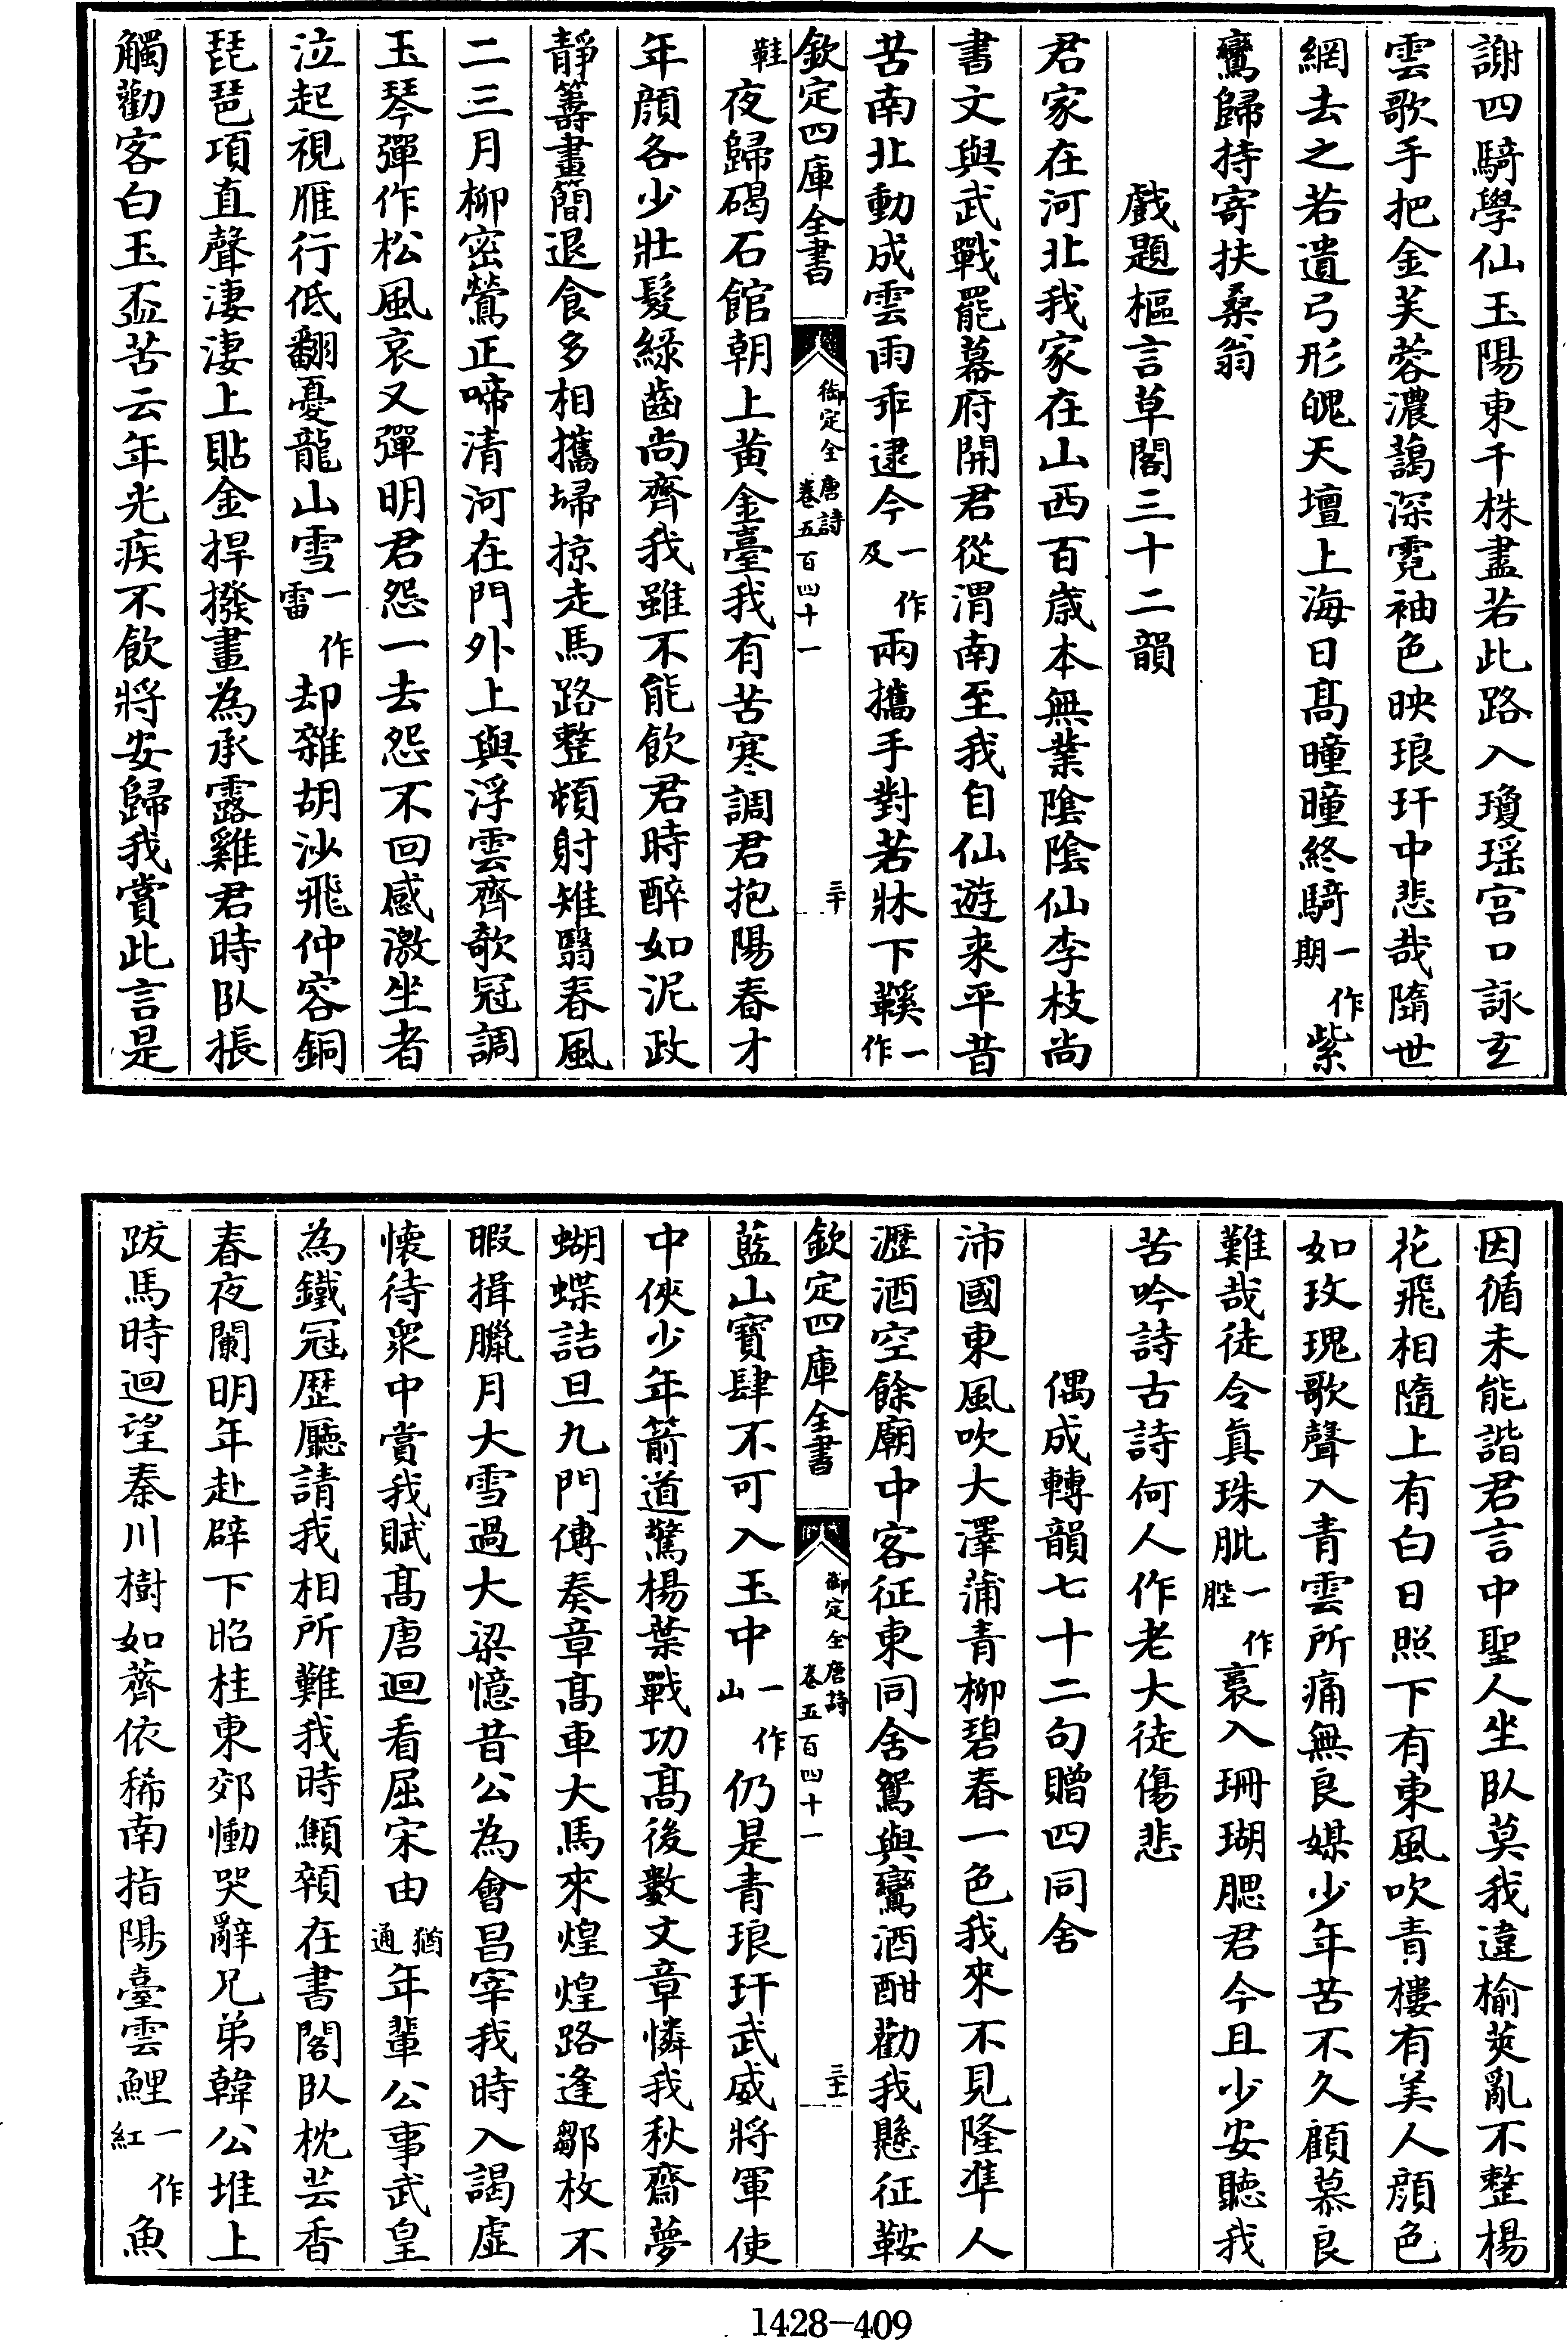 謝四騎學仙玉陽東千株盡若此路入瓊瑶宫口詠玄
雲歌手把金芙蓉濃藹深霓袖色映琅玕中悲哉隋世
網去之若遺弓形魄天壇上海日髙曈曈終騎一作期紫
鸞歸持寄扶桑翁
戲題樞言草閣三十二韻
君家在河北我家在山西百歳本無業隂隂仙李枝尚
書文與武戰罷幕府開君從渭南至我自仙遊来平昔
苦南北動成雲雨乖逮今一作及兩攜手對若牀下鞵一作
欽定四庫全書
御定全唐詩
卷五百四十一
三十
鞋夜歸碣石館朝上黄金臺我有苦寒調君抱陽春才
年顔各少壯髮緑齒尚齊我雖不能飲君時醉如泥政
靜籌畫簡退食多相攜埽掠走馬路整頓射雉翳春風
二三月柳密鶯正啼清河在門外上與浮雲齊欹冠調
玉琴彈作松風哀又彈明君怨一去怨不回感激坐者
泣起視雁行低翻憂龍山雪一作雷却雜胡沙飛仲容銅
琵琶項直聲淒淒上貼金捍撥畫為承露雞君時臥掁
觸勸客白玉盃苦云年光疾不飲將安歸我賞此言是
因循未能諧君言中聖人坐臥莫我違榆莢亂不整楊
花飛相隨上有白日照下有東風吹青樓有美人顔色
如玫瑰歌聲入青雲所痛無良媒少年苦不久顧慕良
難哉徒令真珠肶一作䏶裛入珊瑚腮君今且少安聽我
苦吟詩古詩何人作老大徒傷悲
偶成轉韻七十二句贈四同舍
沛國東風吹大澤蒲青柳碧春一色我來不見隆準人
瀝酒空餘廟中客征東同舍鴛與鸞酒酣勸我懸征鞍
欽定四庫全書
御定全唐詩
卷五百四十一
三十一
藍山寶肆不可入玉中一作山仍是青琅玕武威將軍使
中俠少年箭道驚楊葉戰功髙後數文章憐我秋齋夢
蝴蝶詰旦九門傳奏章髙車大馬來煌煌路逢鄒枚不
暇揖臘月大雪過大梁憶昔公為會昌宰我時入謁虚
懐待衆中賞我賦髙唐迴看屈宋由猶通年輩公事武皇
為鐵冠歴廳請我相所難我時顦顇在書閣臥枕芸香
春夜闌明年赴辟下昭桂東郊慟哭辭兄弟韓公堆上
跋馬時迴望秦川樹如薺依稀南指陽臺雲鯉一作紅魚
1428-409